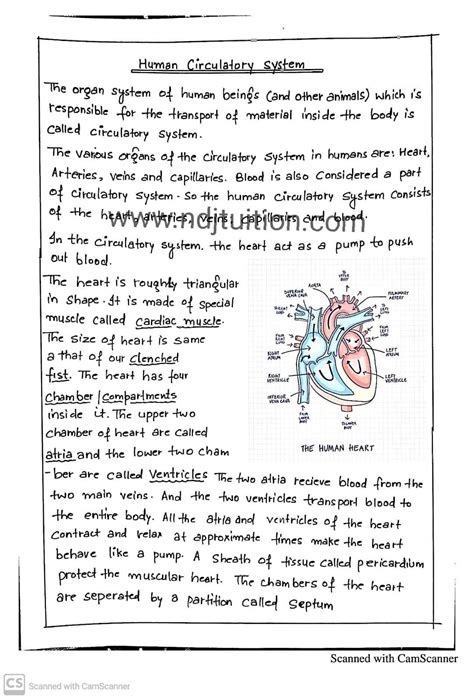 Human Circulatory System
The organ system of human beings (and other animals) which is
responsible for the transport of material inside the body is
called circulatory system.
The various organs of the circulatory system in humans are: Heart,
Arteries, veins and capillaries. Blood is also considered a part
of circulatory system. So the human circulatory system consists
of the heart, arteries, veins, capillaries and blood.
www.ndjtuition.com
In the circulatory system. the heart act as a pump to push
out blood.
The heart is roughly triangular
in shape. It is made of special
muscle called cardiac muscle.
The size of heart is same
a that of our clenched
fist. The heart has four
chamber/compartments
inside it. The upper two
chamber of heart are called
atria and the lower two cham
TO UPPER BODY
AORTA
SUPERIOR VENA CAVA
PULMONARY ARTERY
TO RIGHT LUNG
TO LEFT LUNG
FROM RIGHT LUNG
FROM LEFT LUNG
RIGHT ATRIUM
LEFT ATRIUM
RIGHT VENTRICLE
LEFT VENTRICLE
INFERIOR VENA CAVA
FROM LOWER BODY
TO LOWER BODY
THE HUMAN HEART
-ber are called Ventricles The two atria recieve blood from the
two main veins. And the two ventricles transport blood to
the entire body. All the atria and ventricles of the heart
Contract and relax at approximate times make the heart
behave like a pump. A Sheath of tissue called pericardium
protect the muscular heart. The chambers of the heart
are seperated by a partition called Septum
Scanned with CamScanner
CS Scanned with CamScanner